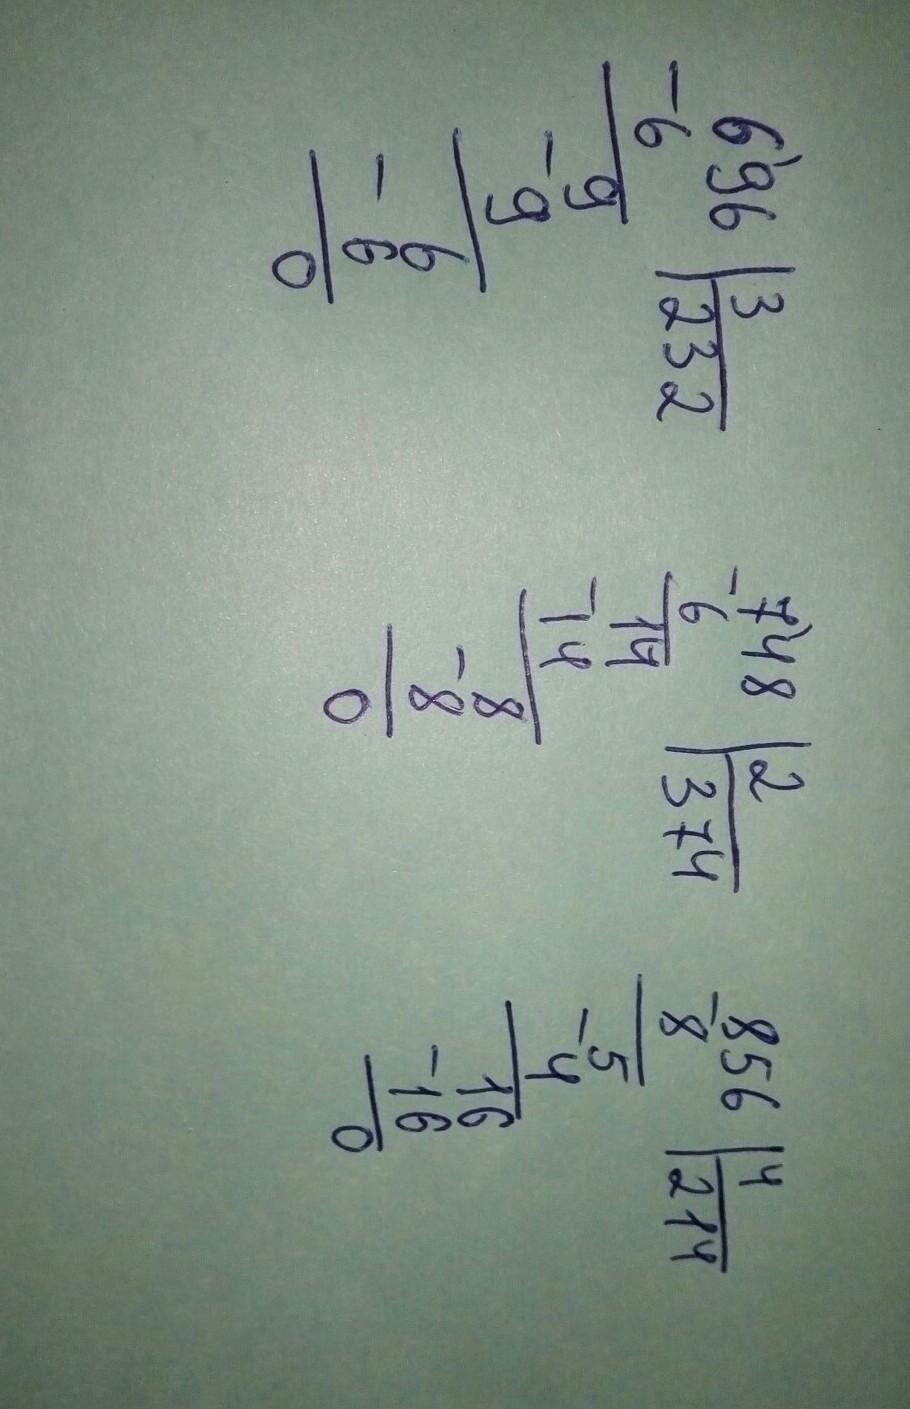 696 | 3
-6 | 232
9
-9
6
-6
0
-748 | 2
6 | 374
14
-14
8
-8
0
-856 | 4
8 | 214
5
-4
16
-16
0